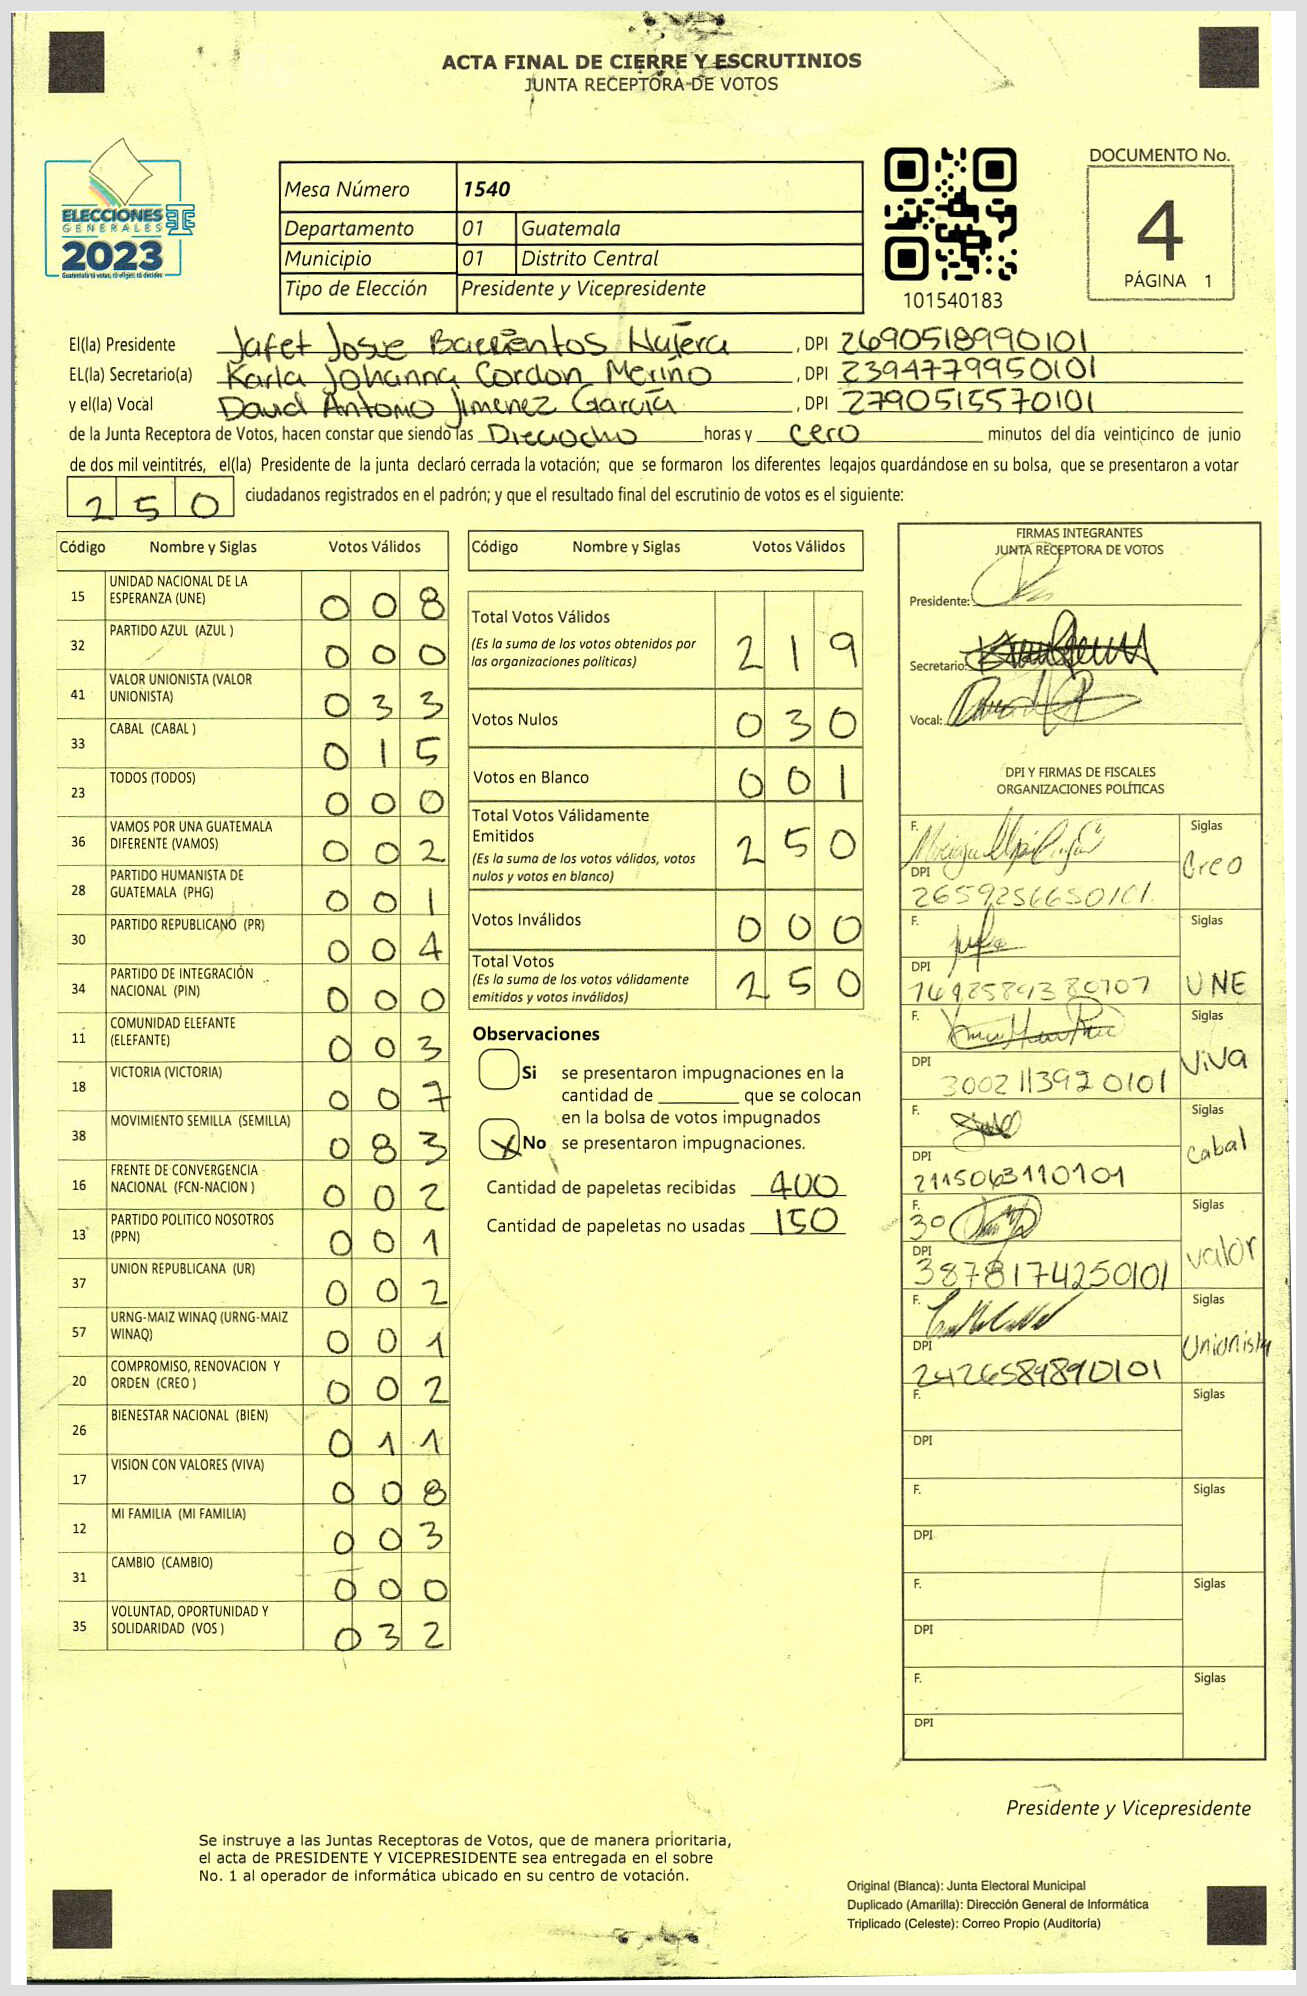 ACTA FINAL DE CIERRE Y ESCRUTINIOS
JUNTA RECEPTORA DE VOTOS
ELECCIONES
GENERALES
2023
Guatemala tú votas, tú eliges, tú decides
Mesa Número 1540
Departamento 01 Guatemala
Municipio 01 Distrito Central
Tipo de Elección Presidente y Vicepresidente
101540183
DOCUMENTO No.
4
PÁGINA 1
El(la) Presidente Jafet Josue Barrientos Najera , DPI 2690518990101
EL(la) Secretario(a) Karla Johanna Cordon Merino , DPI 2394779950101
y el(la) Vocal David Antonio Jimenez García , DPI 2790515570101
de la Junta Receptora de Votos, hacen constar que siendo las Dieciocho horas y cero minutos del día veinticinco de junio
de dos mil veintitrés, el(la) Presidente de la junta declaró cerrada la votación; que se formaron los diferentes legajos guardándose en su bolsa, que se presentaron a votar
250 ciudadanos registrados en el padrón; y que el resultado final del escrutinio de votos es el siguiente:
Código Nombre y Siglas Votos Válidos
15 UNIDAD NACIONAL DE LA ESPERANZA (UNE) 008
32 PARTIDO AZUL (AZUL ) 000
41 VALOR UNIONISTA (VALOR UNIONISTA) 033
33 CABAL (CABAL ) 015
23 TODOS (TODOS) 000
36 VAMOS POR UNA GUATEMALA DIFERENTE (VAMOS) 002
28 PARTIDO HUMANISTA DE GUATEMALA (PHG) 001
30 PARTIDO REPUBLICANO (PR) 004
34 PARTIDO DE INTEGRACIÓN NACIONAL (PIN) 000
11 COMUNIDAD ELEFANTE (ELEFANTE) 003
18 VICTORIA (VICTORIA) 007
38 MOVIMIENTO SEMILLA (SEMILLA) 083
16 FRENTE DE CONVERGENCIA NACIONAL (FCN-NACION ) 002
13 PARTIDO POLITICO NOSOTROS (PPN) 001
37 UNION REPUBLICANA (UR) 002
57 URNG-MAIZ WINAQ (URNG-MAIZ WINAQ) 001
20 COMPROMISO, RENOVACION Y ORDEN (CREO ) 002
26 BIENESTAR NACIONAL (BIEN) 011
17 VISION CON VALORES (VIVA) 008
12 MI FAMILIA (MI FAMILIA) 003
31 CAMBIO (CAMBIO) 000
35 VOLUNTAD, OPORTUNIDAD Y SOLIDARIDAD (VOS ) 032
Código Nombre y Siglas Votos Válidos
Total Votos Válidos 219
(Es la suma de los votos obtenidos por
las organizaciones politicas)
Votos Nulos 030
Votos en Blanco 001
Total Votos Válidamente
Emitidos 250
(Es la suma de los votos válidos, votos
nulos y votos en blanco)
Votos Inválidos 000
Total Votos 250
(Es la suma de los votos válidamente
emitidos y votos inválidos)
Observaciones
Si se presentaron impugnaciones en la
cantidad de ________ que se colocan
en la bolsa de votos impugnados
X No se presentaron impugnaciones.
Cantidad de papeletas recibidas 400
Cantidad de papeletas no usadas 150
FIRMAS INTEGRANTES
JUNTA RECEPTORA DE VOTOS
Presidente:
Secretario:
Vocal:
DPI Y FIRMAS DE FISCALES
ORGANIZACIONES POLÍTICAS
F. Siglas
Creo
DPI
2659256650101
F. Siglas
DPI UNE
F. Siglas
DPI ViVa
3002113920101
F. Siglas
DPI cabal
2115063110101
F. Siglas
30
DPI valor
3878174250101
F. Siglas
DPI Unionista
2426589890101
F. Siglas
DPI
F. Siglas
DPI
F. Siglas
DPI
F. Siglas
DPI
Presidente y Vicepresidente
Se instruye a las Juntas Receptoras de Votos, que de manera prioritaria,
el acta de PRESIDENTE Y VICEPRESIDENTE sea entregada en el sobre
No. 1 al operador de informática ubicado en su centro de votación.
Original (Blanca): Junta Electoral Municipal
Duplicado (Amarilla): Dirección General de Informática
Triplicado (Celeste): Correo Propio (Auditoría)